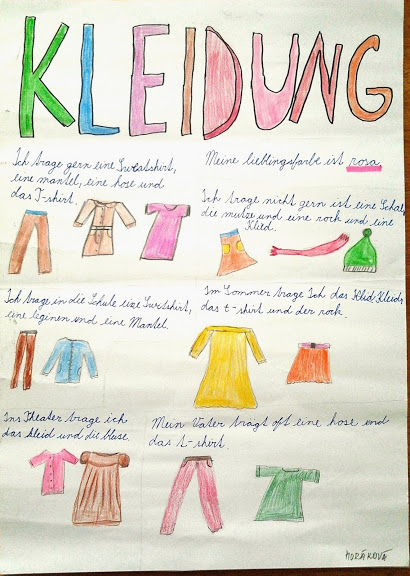 KLEIDUNG
Ich trage gern eine Sweatshirt,
eine mantel, eine hose und
das T-shirt.
Meine lieblingsfarbe ist rosa
Ich trage nicht gern ist eine Schal,
die mutze und eine rock und eine
Klied.
Ich trage in die Schule eine Swetshirt,
eine leginen und eine Mantel.
Im Sommer trage Ich das Klid Kleids,
das t-shirt und der rock.
Ins Theater trage ich
das kleid und die bluse.
Mein Vater trägt oft eine hose und
das t-shirt.
HORÁKOVÁ